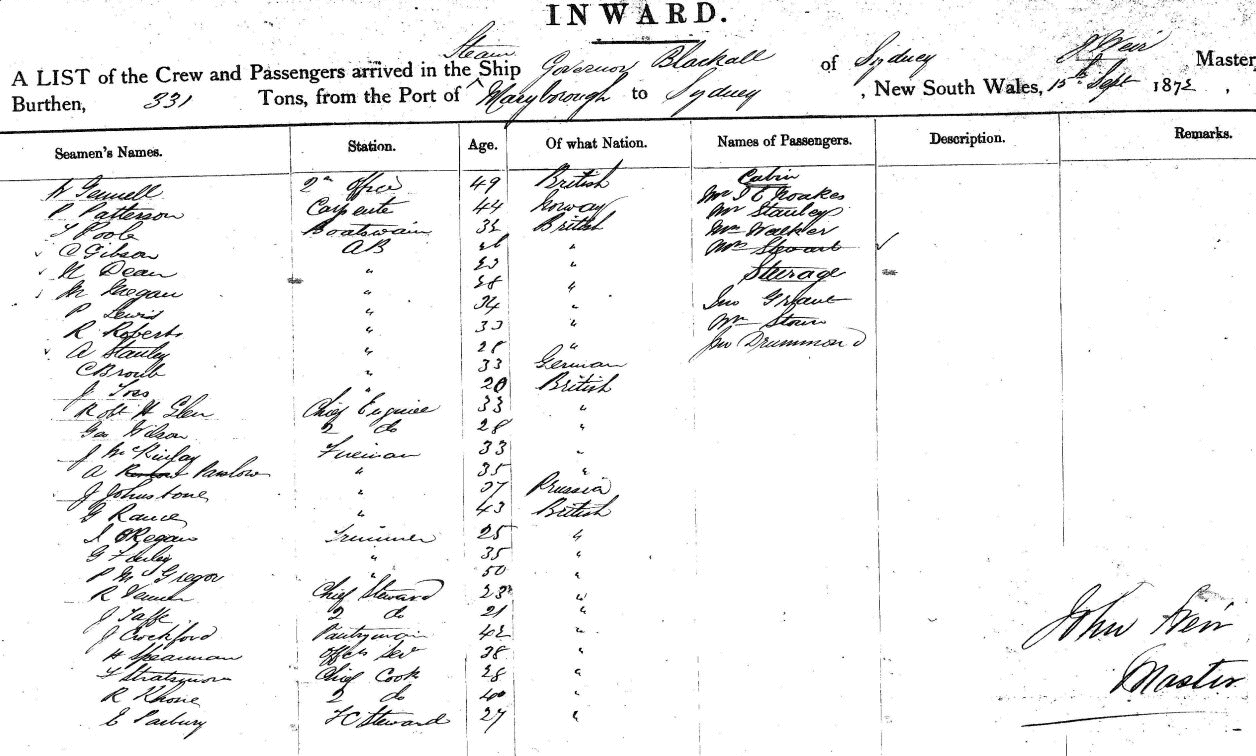 INWARD.
Steam
A LIST of the Crew and Passengers arrived in the Ship Governor Blackall of Sydney J Weir Master,
Burthen, 331 Tons, from the Port of Maryborough to Sydney, New South Wales, 15th Sept 1872,
Seamen's Names. Station. Age. Of what Nation. Names of Passengers. Description. Remarks.
2nd Officer 49 British Cabin
P Patterson Carpente 44 Norway Mr Noakes
T Poole Boatswain 32 British Mr Stanley
C Gibson AB 26 " Mr Walker
Dean " 23 " Mrs Stewart
" 28 " Steerage
P Lewis " 34 " Jno Grant
R Roberts " 33 "
A Stanley " 28 " Jno Drummond
" 33 German
J " 20 British
Robt H Glen Chief Enginee 33 "
Geo Wilson 2 do 28 "
J McKinlay Fireman 33 "
A Paslow " 35 "
J Johnstone " 37 Prussia
G " 43 British
O'Regan Trimmer 25 "
G " 35 "
P McGregor " 50 "
R Chief Steward 23 "
J Taffe 2 do 21 "
J Crockford Pantryman 42 "
H Spearman 38 "
Chief Cook 28 "
R 2 do 40 "
E Parbury FC Steward 27 "
John Weir
Master